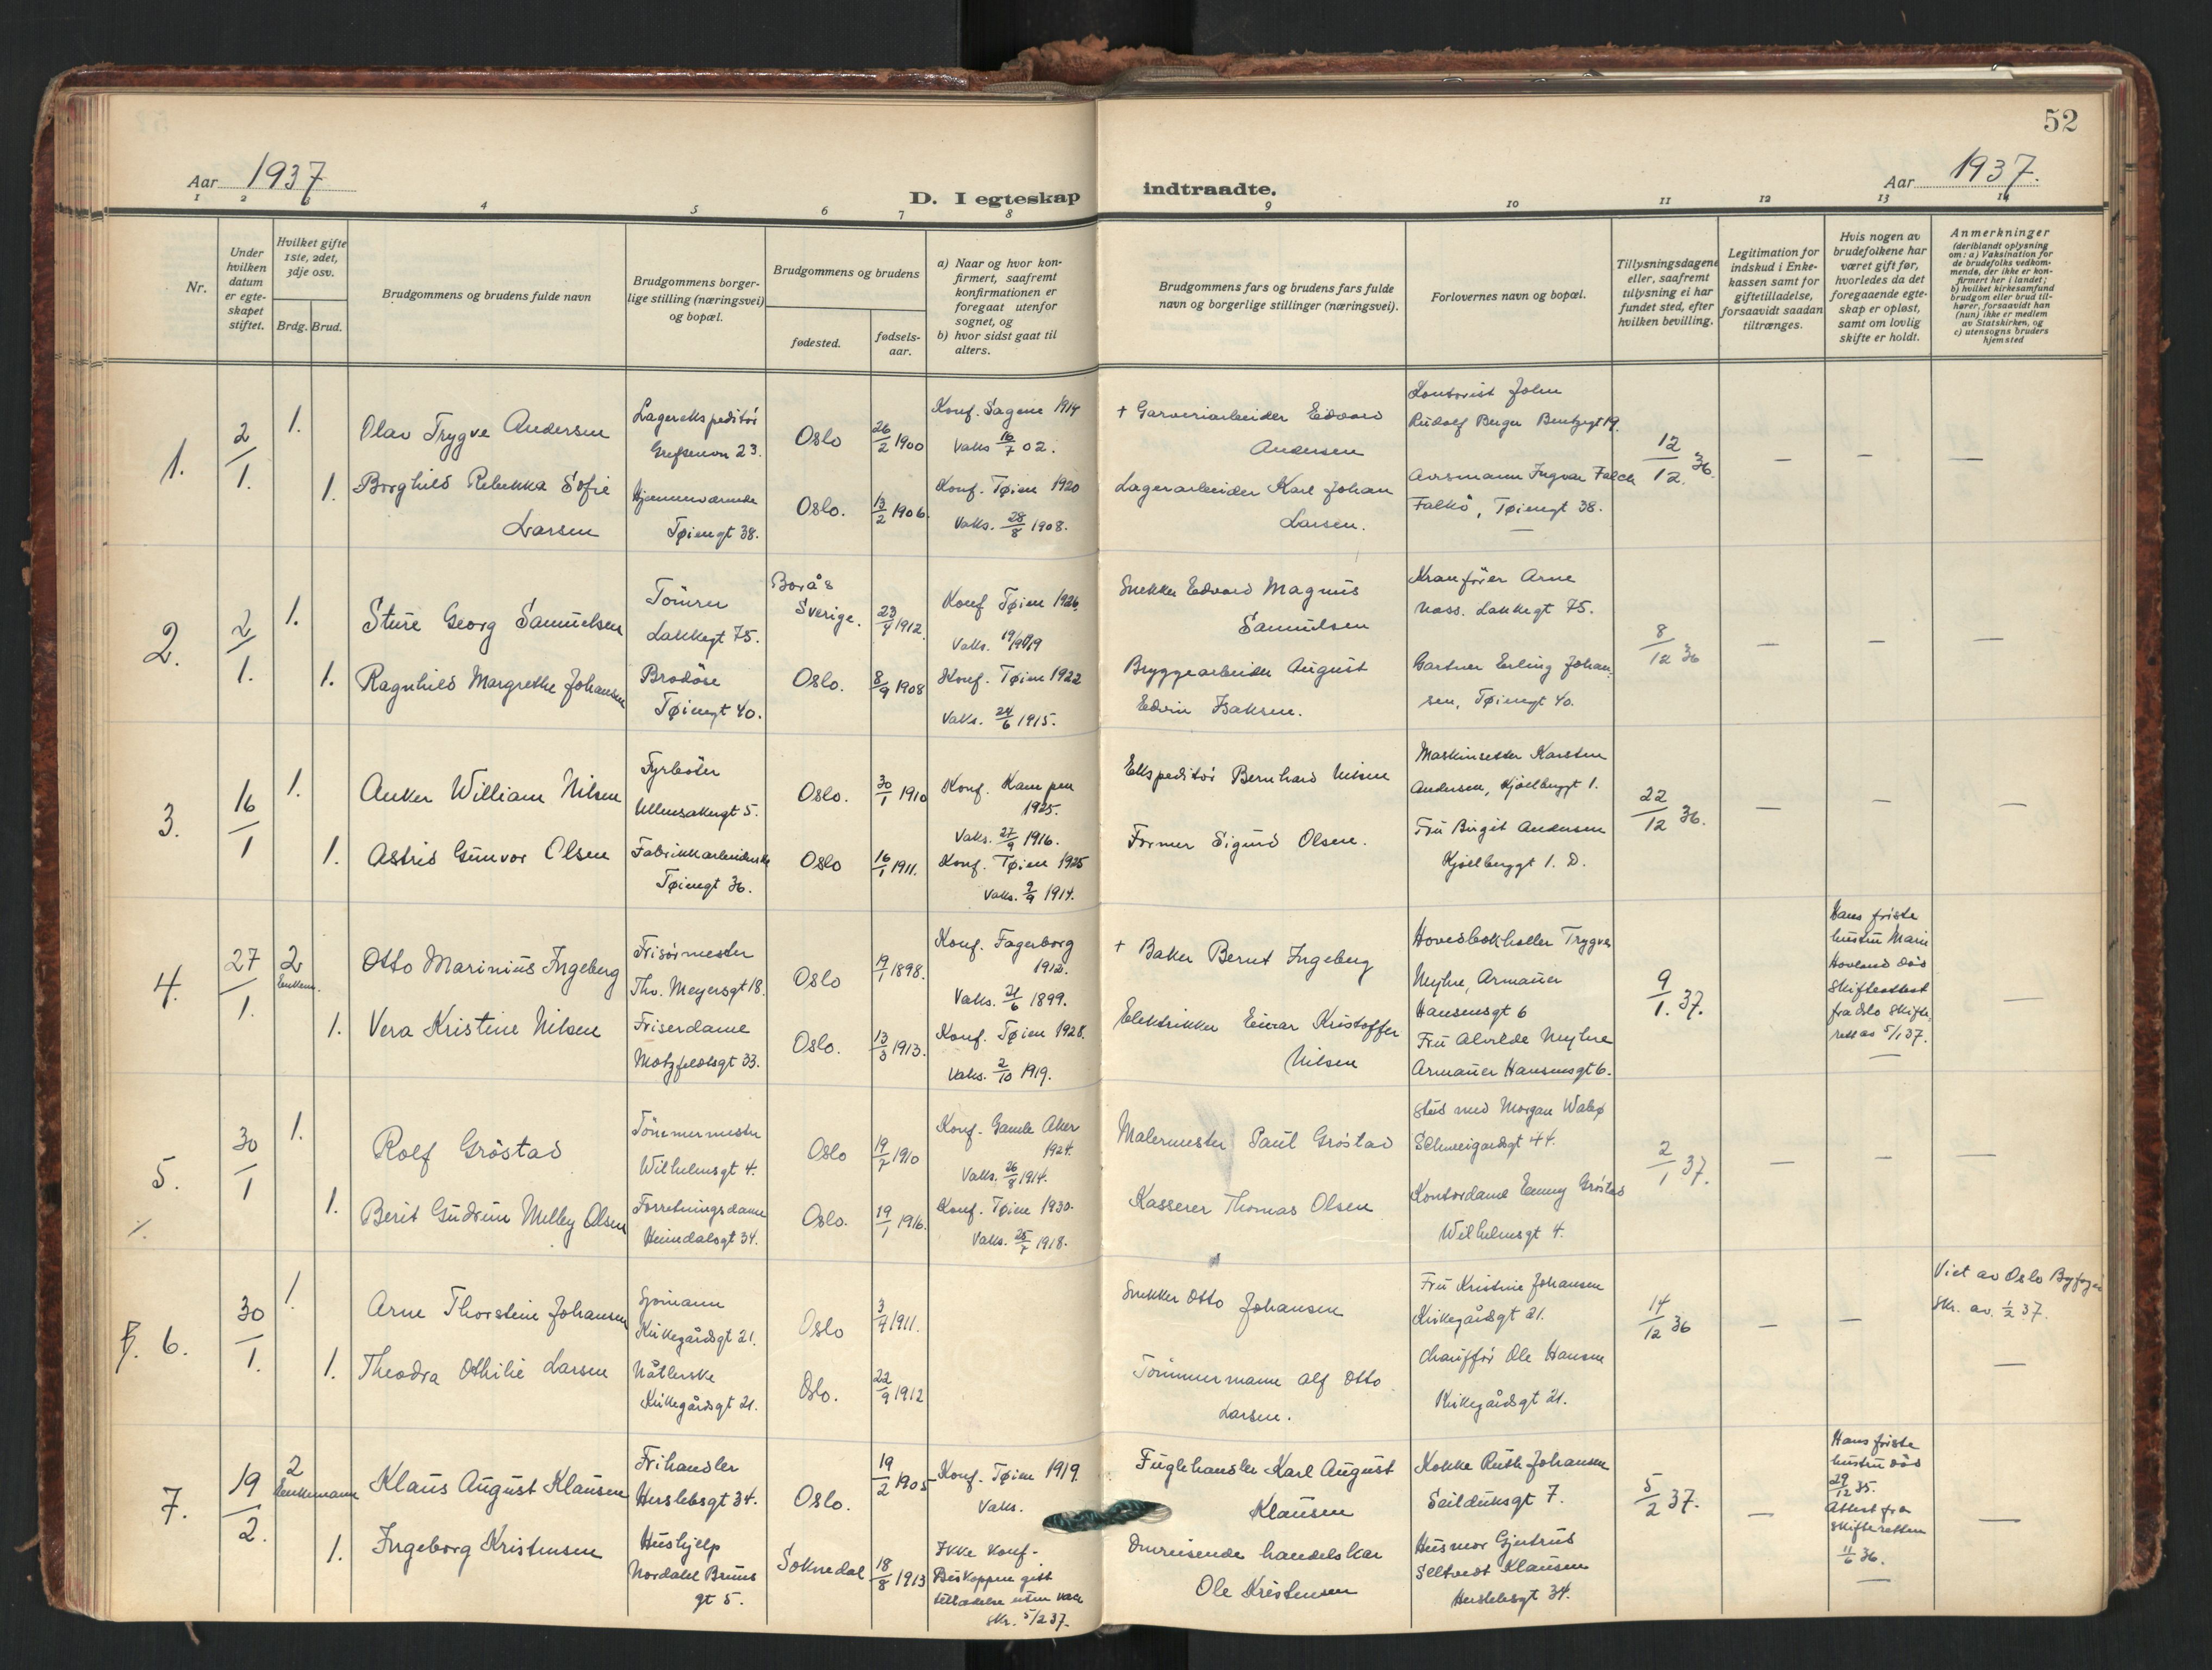 52
Aar 1937
D. I egteskap indtraadte.
Aar 1937.
1 2 3 4 5 6 7 8 9 10 11 12 13 14
Nr.
Under hvilken datum er egteskapet stiftet.
Hvilket gifte 1ste, 2det, 3dje osv.
Brdg. Brud.
Brudgommens og brudens fulde navn
Brudgommens borgerlige stilling (næringsvei) og bopæl.
Brudgommens og brudens
fødested.
fødselsaar.
a) Naar og hvor konfirmert, saafremt konfirmationen er foregaat utenfor sognet, og
b) hvor sidst gaat til alters.
Brudgommens fars og brudens fars fulde navn og borgerlige stillinger (næringsvei).
Forlovernes navn og bopæl.
Tillysningsdagene eller, saafremt tillysning ei har fundet sted, efter hvilken bevilling.
Legitimation for indskud i Enkekassen samt for giftetilladelse, forsaavidt saadan tiltrænges.
Hvis nogen av brudefolkene har været gift før, hvorledes da det foregaaende egteskap er opløst, samt om lovlig skifte er holdt.
Anmerkninger
(deriblandt oplysning om: a) Vaksination for de brudefolks vedkommende, der ikke er konfirmert her i landet;
b) hvilket kirkesamfund brudgom eller brud tilhører, forsaavidt han (hun) ikke er medlem av Statskirken, og
c) utensogns bruders hjemsted
1.
2/1.
1.
Olav Trygve Andersen
Lagerekspeditör
Grefsenvn 23.
Oslo
26/2 1900
Konf. Sagene 1914
Vaks 16/7 02.
+ Garveriarbeider Edvard
Andersen
Kontorist John
Rudolf Berger Bentzegt 19.
12/12 36.
— — —
1.
Borghild Rebekka Sofie
Larsen
Hjemmeværende
Tøiengt 38.
Oslo.
13/2 1906.
Konf. Tøien 1920
Vaks. 28/8 1908.
Lagerarbeider Karl Johan
Larsen.
Avismann Ingvar Falch
Falkö, Tøiengt 38.
—
2.
2/1.
1.
Sture Georg Samuelsen
Tömrer
Lakkegt 75.
Borås
Sverige.
23/4 1912.
Konf Tøien 1926.
Vaks. 19/9 19
Snekker Edvard Magnus
Samuelsen
Kranförer Arne
Næss. Lakkegt 75.
8/12 36
— — —
1.
Ragnhild Margrethe Johansen
Brodöse
Tøiengt 40.
Oslo.
8/9 1908
Konf. Tøien 1922
Vaks. 24/6 1915.
Bryggearbeider August
Edvin Isaksen.
Gartner Erling Johan-
sen, Tøiengt 40.
3.
16/1
1.
Anker William Nilsen
Fyrböter
Ullensakergt 5.
Oslo.
30/1 1910
Konf. Kampen
1925.
Vaks. 27/9 1916.
Ekspeditör Bernhard Nilsen
Maskinsetter Karsten
Andersen, Kjölberggt 1.
22/12 36.
— — —
1.
Astrid Gunvor Olsen
Fabrikkarbeiderske
Tøiengt 36.
Oslo
16/1 1911.
Konf. Tøien 1925
Vaks. 9/9 1914.
Former Sigurd Olsen.
Fru Birgit Andersen
Kjölberggt 1. D.
4.
27/1.
2
Enkem.
Otto Marinius Ingeberg
Frisörmester
Thv. Meyersgt 18.
Oslo
19/1 1898.
Konf. Fagerborg
1912.
Vaks. 21/6 1899.
+ Baker Bernt Ingeberg
Hovedbokholder Trygve
Myhre, Armauer
Hansensgt 6
9/1. 37.
Hans förste
hustru Marie
Hovland död
Skifteattest
fra Oslo Skifte-
rett av 5/1 37.
—
1.
Vera Kristine Nilsen
Friserdame
Motzfeldtsgt 33.
Oslo.
13/3 1913.
Konf. Tøien 1928.
Vaks. 2/10 1919.
Elektrikker Einar Kristoffer
Nilsen
Fru Alvilde Myhre
Armauer Hansensgt 6.
5.
30/1
1.
Rolf Gröstad
Tömmermester
Wilhelmsgt 4.
Oslo
19/7 1910
Konf. Gamle Aker
1924.
Vaks. 26/8 1914.
Malermester Paul Gröstad
Stud med Morgan Walsø
Schweigaardsgt 44.
2/1 37.
— — —
1.
Berit Gudrun Melley Olsen
Forretningsdame
Heimdalsgt 34.
Oslo.
19/1 1916.
Konf. Tøien 1930.
Vaks. 25/7 1918.
Kasserer Thomas Olsen
Kontordame Emmy Gröstad
Wilhelmsgt 4.
6.
30/1.
1.
Arne Thorstein Johansen
Sjömann
Kirkegårdsgt 21.
Oslo
3/9 1911.
Snekker Otto Johansen
Fru Kristine Johansen
Kirkegårdsgt 21.
14/12 36
— —
Viet av Oslo Byfogd
Skr. av. 1/2 37.
—
1.
Theodra Othilie Larsen
Nåtlerske
Kirkegårdsgt 21.
Oslo.
22/9 1912
Tömmermann Alf Otto
Larsen.
Chaufför Ole Hansen
Kirkegårdsgt 21.
7.
19/2.
2
Enkemann
Klaus August Klausen
Frihandler
Herslebsgt 34.
Oslo.
19/2 1905
Konf. Tøien 1919.
Vaks.
Fuglehandler Karl August
Klausen
Kokke Ruth Johansen
Seilduksgt 7.
5/2 37.
—
Hans förste
hustru död
29/12 35.
Attest fra
Skifteretten
11/6 36.
—
1.
Ingeborg Kristensen
Hushjelp
Nordahl Bruns
gt 5.
Soknedal
18/8 1913
Ikke konf.
Biskoppen gitt
tilladelse uten vaks
skr. 5/2 37.
Omreisende handelskar
Ole Kristensen
Husmor Gjertrud
Seltvedt Klausen
Herslebsgt 34.